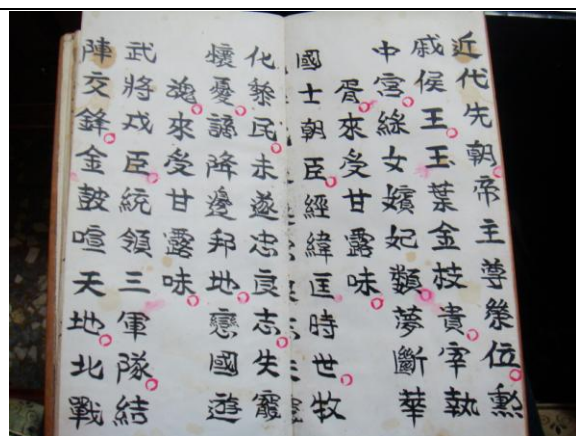 近代先朝帝主尊榮位勲
戚侯王玉葉金枝貴宰執
中宮綵女嬪妃類夢斷華
胥來受甘露味
國士朝臣經緯匡時世牧
化黎民未遂忠良志失寵
懷憂謫降邊邦地戀國遊
魂來受甘露味
武將戎臣統領三軍隊結
陣交鋒金鼓喧天地北戰